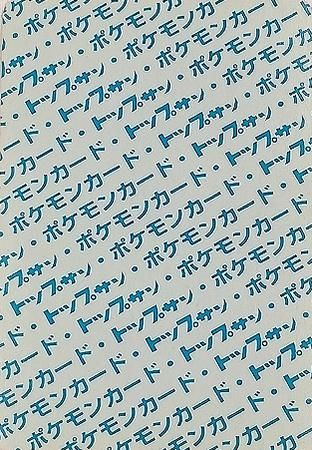 ポケモンカード
トップサン・ポケモンカード・
・トップサン・ポケモンカード・
カード・トップサン・ポケモンカード
モンカード・トップサン・ポケモン
ポケモンカード・トップサン・ポケ
・ポケモンカード・トップサン・
トップサン・ポケモンカード・トップサン
・トップサン・ポケモンカード・
カード・トップサン・ポケモンカード
モンカード・トップサン・ポケモン
ポケモンカード・トップサン・ポケ
・ポケモンカード・トップサン
ポケモンカード・